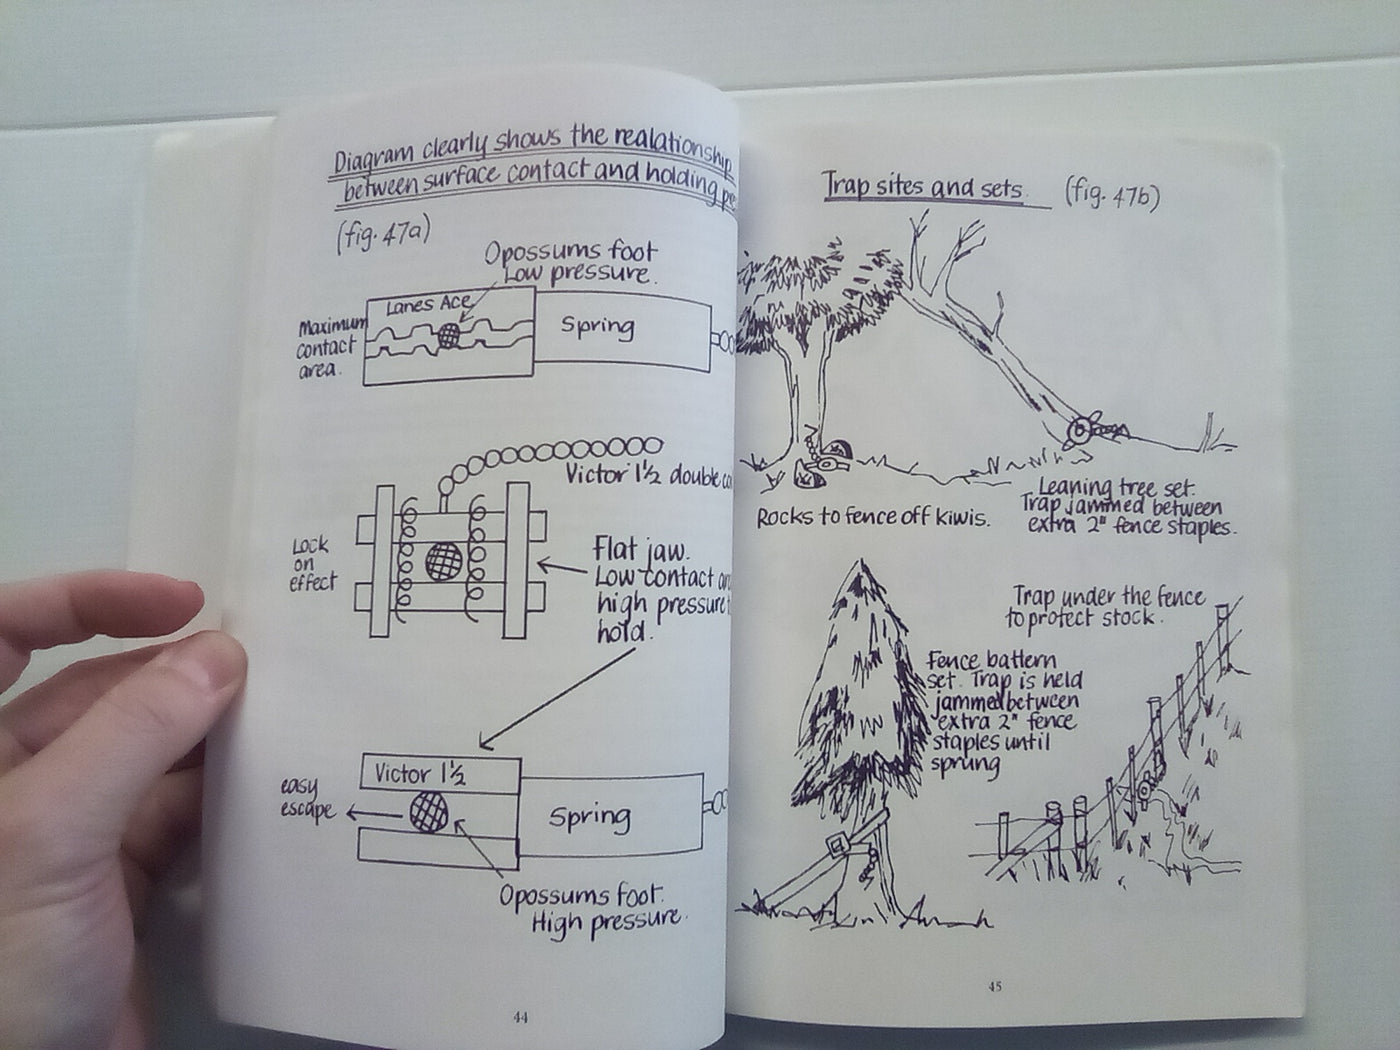 Diagram clearly shows the realationship
between surface contact and holding
(fig. 47a)
Opossums foot
Low pressure.
Lanes Ace
Maximum
contact
area.
Spring
Victor 1½ double
Lock
on
effect
Flat jaw.
Low contact
high pressure
hold.
Victor 1½
easy
escape
Spring
Opossums foot.
High pressure.
44
Trap sites and sets. (fig. 47b)
Rocks to fence off kiwis.
Leaning tree set.
Trap jammed between
extra 2" fence staples.
Trap under the fence
to protect stock.
Fence battern
set. Trap is held
jammed between
extra 2" fence
staples until
sprung
45